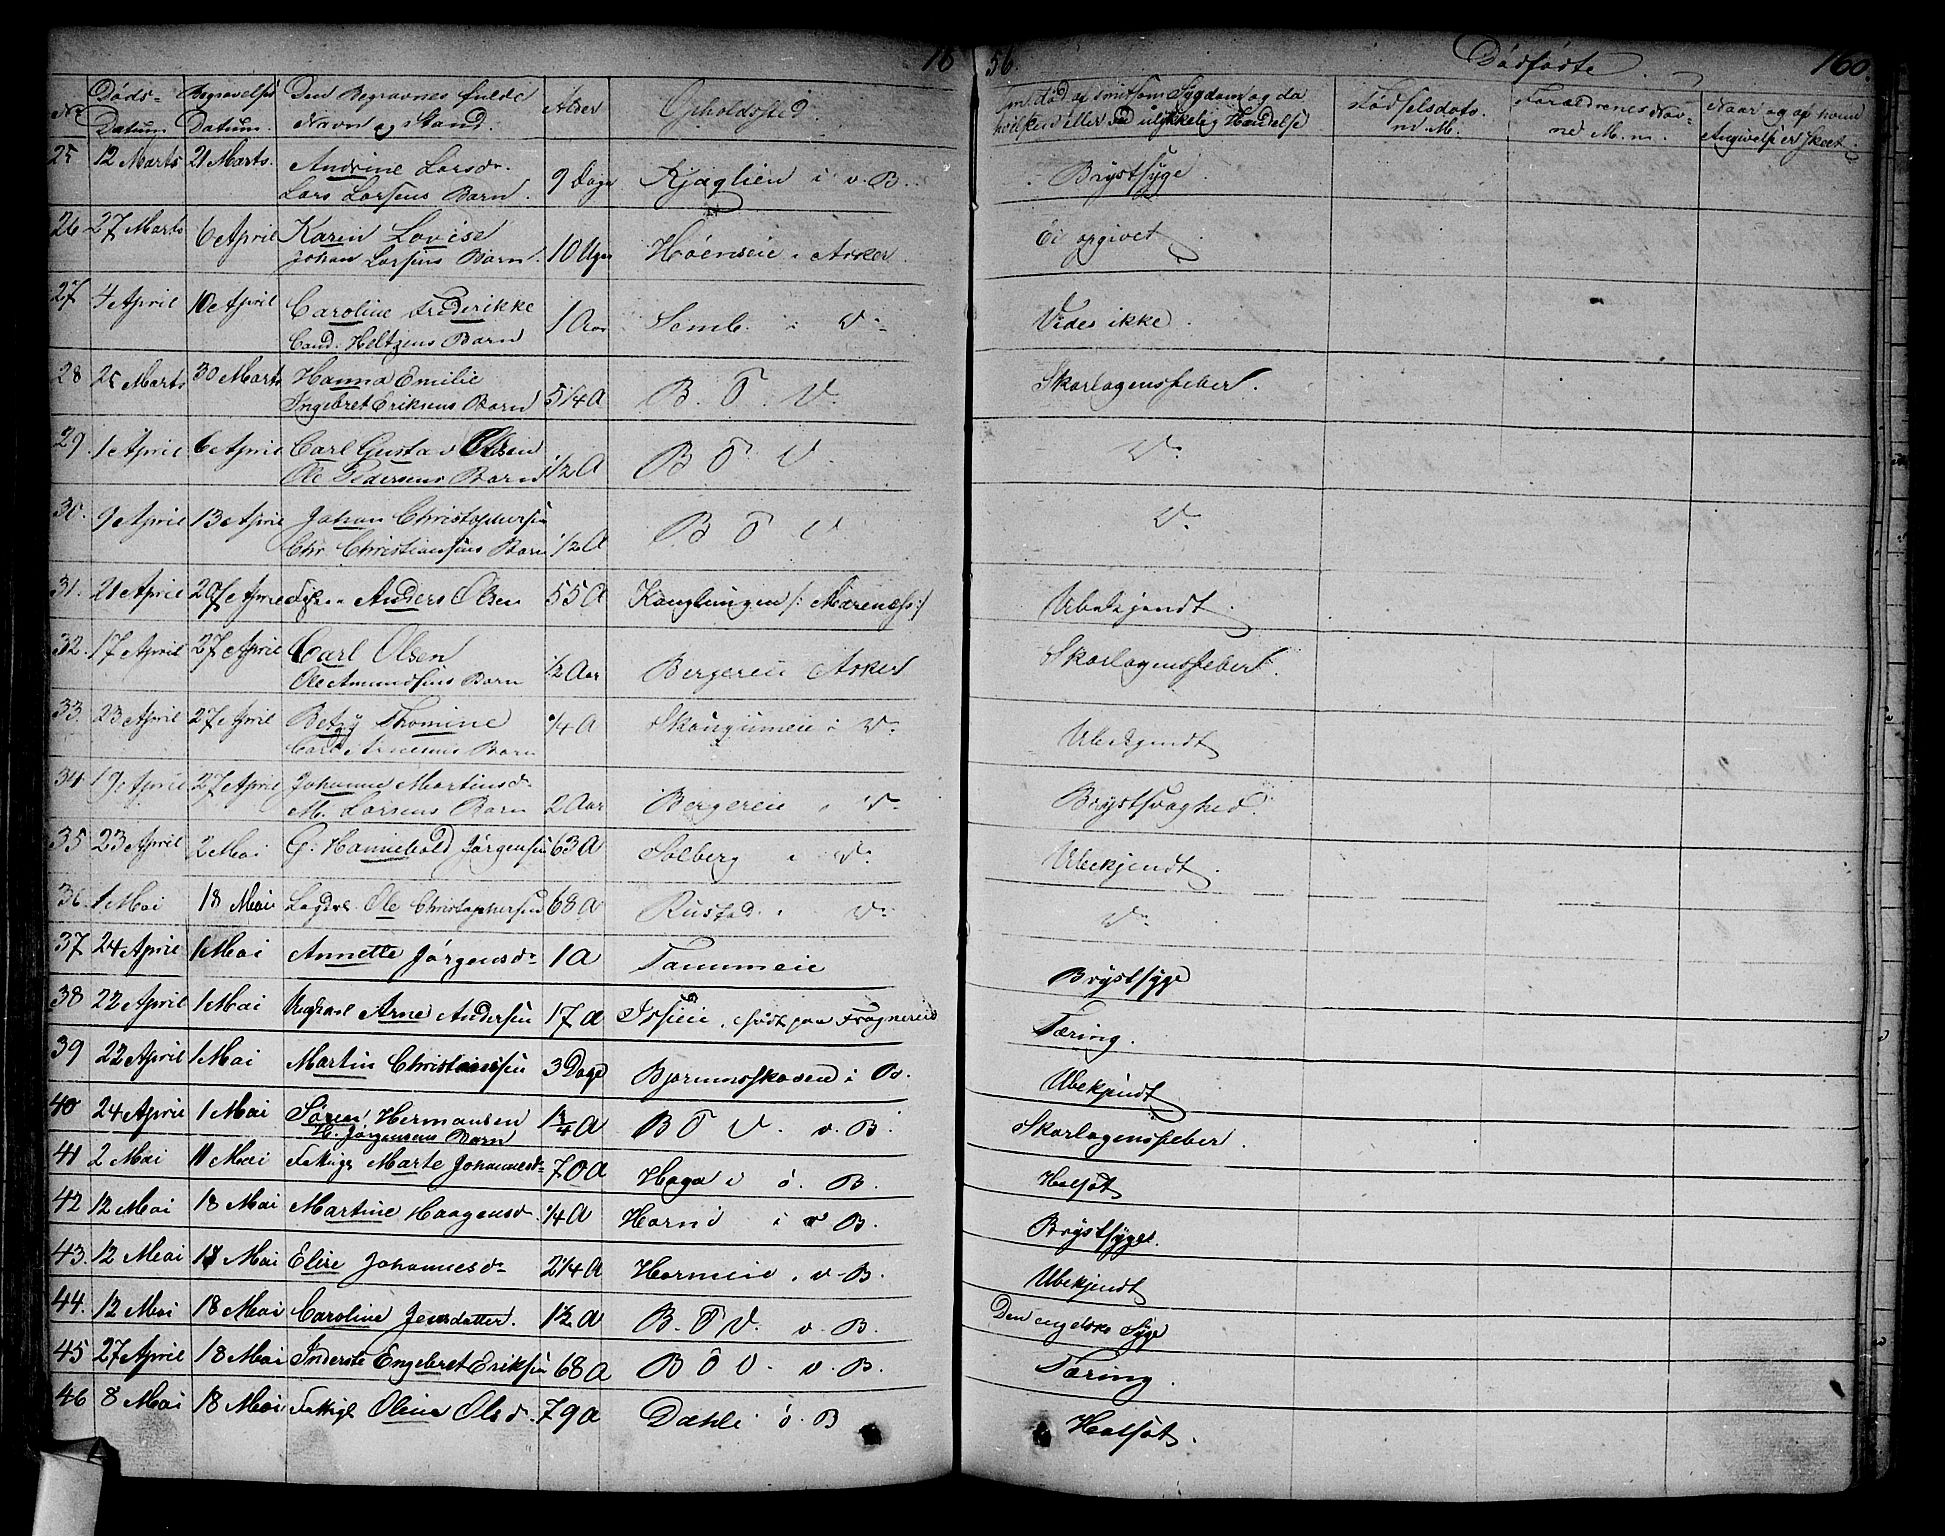 18 56. Dödfödte 160.
No Döds-Datum Begravelses Datum. Den Begravnes fulde Navn og Stand. Alder Opholdssted. Om död af smitsom Sygdom og da hvilken eller ved ulykkelig Hændelse Födselsdato M. Forældrenes Navne M. m. Naar og af hvem Angivelse er skeet.
25 12 Marts 21 Marts. Andrine Larsdr. 9 Dage Kjæglien i v. B. Brystsyge.
Lars Larsens Barn.
26 27 Marts 6 April Karen Lovise 10 Uger Höenseie i Asker Ei opgivet
Johan Larsens Barn.
27 4 April 10 April Caroline Frederikke 1 Aar Semb. i Do Vides ikke.
Cand. Heltzens Barn
28 25 Marts 30 Marts Hanna Emilie 5 1/4 A B. O. V. Skarlagensfeber.
Ingebret Eriksens Barn
29. 1 April 6 April Carl Gustav Olsen 1/2 A B O V. Do
Ole Pedersens Barn
30. 9 April 13 April Johan Christophersen 1/2 A B O V Do
Chr Christiansens Barn
31. 21 April 27 April Anders Olsen 55 A Konglungen /: Mærenæs :/ Ubekjendt.
32. 17 April 27 April Carl Olsen 1/2 Aar Bergereie Asker Skarlagensfeber.
Ole Amundsens Barn
33. 23 April 27 April Betzy Thomine 1/4 A Skougumeie i Do Ubekjendt
Carl Arnesens Barn
34 19 April 27 April Johanne Martinsdr 2 Aar Bergereie i Do Brystsvaghed.
M. Larsens Barn
35 23 April 2 Mai G. Hannibald Jörgensen 63 A Solberg i Do Ubekjendt.
36. 1 Mai 18 Mai Ole Christophersen 68 A Rustad i Do Do
37 24 April 1 Mai Annette Jörgensdr 1 A Tommeie Brystsyge
38 22 April 1 Mai Ungkarl Arne Andersen 17 A födt paa Fragnereie Tæring.
39 22 April 1 Mai Martin Christiansen 3 Dage Bjorumsskoven i B. Ubekjendt
40 24 April 1 Mai Sören Hermansen 1 3/4 A B O V. v. B. Skarlagensfeber.
H. Jörgensens Barn
41 2 Mai 11 Mai Fattige Marte Johannesdr 70 A Haga i ö. B. Halsot
42 12 Mai 18 Mai Martine Haagensdr. 1/4 A Horni i v B. Brystsyge.
43. 12 Mai 18 Mai Elise Johannesdr 2 1/4 A Horneie i v. B. Ubekjendt
44. 12 Mai 18 Mai Caroline Jensdatter. 1 1/2 A B. O V. v. B. Den engelske Syge
45 27 April 18 Mai Inderste Engebret Eriksen 68 A B O V. v. B. Tæring.
46 8 Mai 18 Mai Fattigl Oline Olsdr. 79 A Dæhli ö. B Halsot.